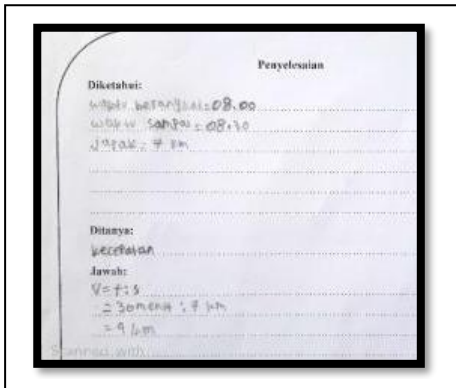 Penyelesaian
Diketahui:
waktu berangkat = 08.00
waktu sampai = 08.30
Jarak = 7 km
Ditanya:
kecepatan
Jawab:
V = t : s
= 30 menit : 7 km
= 4 km
Scanned with